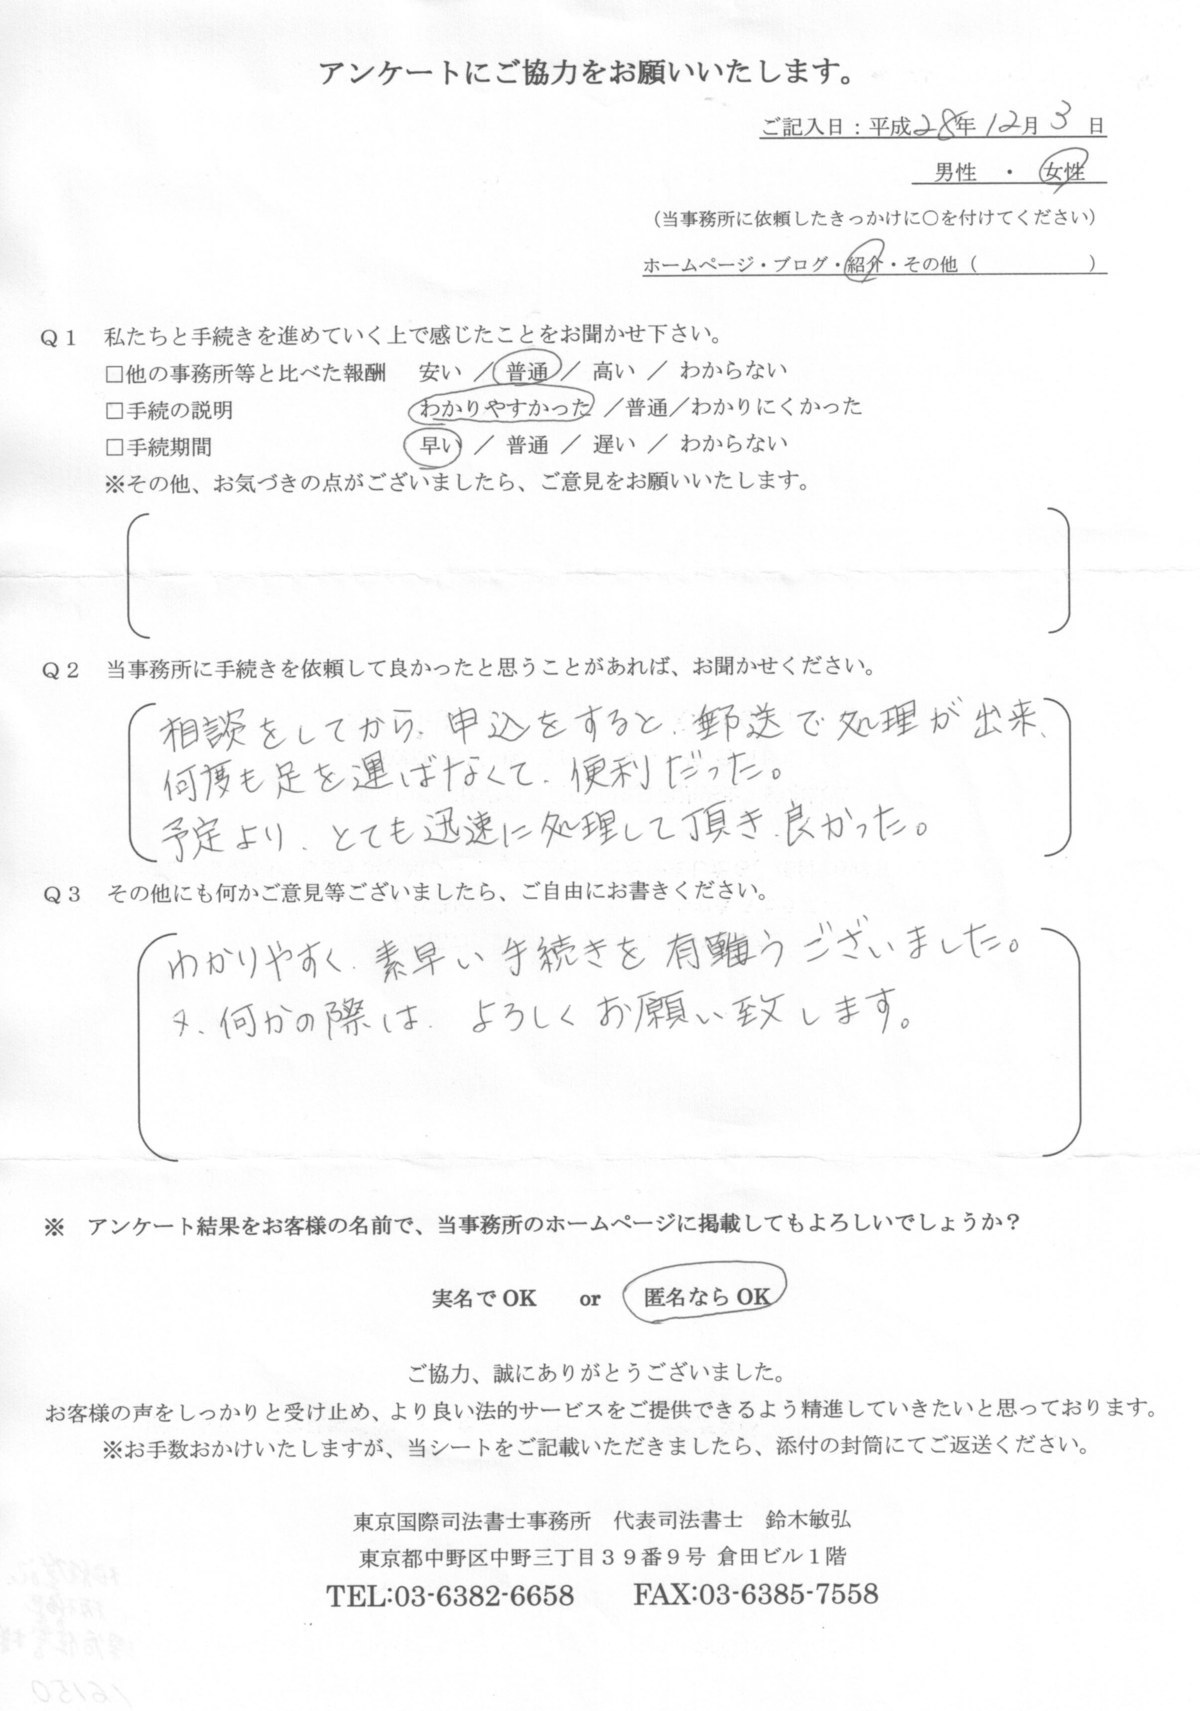 アンケートにご協力をお願いいたします。
ご記入日：平成28年12月3日
男性　・　女性
（当事務所に依頼したきっかけに○を付けてください）
ホームページ・ブログ・紹介・その他（　　　　　）
Ｑ１　私たちと手続きを進めていく上で感じたことをお聞かせ下さい。
□他の事務所等と比べた報酬　安い ／ 普通 ／ 高い ／ わからない
□手続の説明　わかりやすかった ／普通／わかりにくかった
□手続期間　早い ／ 普通 ／ 遅い ／ わからない
※その他、お気づきの点がございましたら、ご意見をお願いいたします。
Ｑ２　当事務所に手続きを依頼して良かったと思うことがあれば、お聞かせください。
相談をしてから、申込をすると、郵送で処理が出来、
何度も足を運ばなくて、便利だった。
予定より、とても迅速に処理して頂き、良かった。
Ｑ３　その他にも何かご意見等ございましたら、ご自由にお書きください。
わかりやすく、素早い手続きを有難うございました。
又、何かの際は、よろしくお願い致します。
※　アンケート結果をお客様の名前で、当事務所のホームページに掲載してもよろしいでしょうか？
実名でOK　or　匿名ならOK
ご協力、誠にありがとうございました。
お客様の声をしっかりと受け止め、より良い法的サービスをご提供できるよう精進していきたいと思っております。
※お手数おかけいたしますが、当シートをご記載いただきましたら、添付の封筒にてご返送ください。
東京国際司法書士事務所　代表司法書士　鈴木敏弘
東京都中野区中野三丁目３９番９号 倉田ビル１階
TEL:03-6382-6658　FAX:03-6385-7558